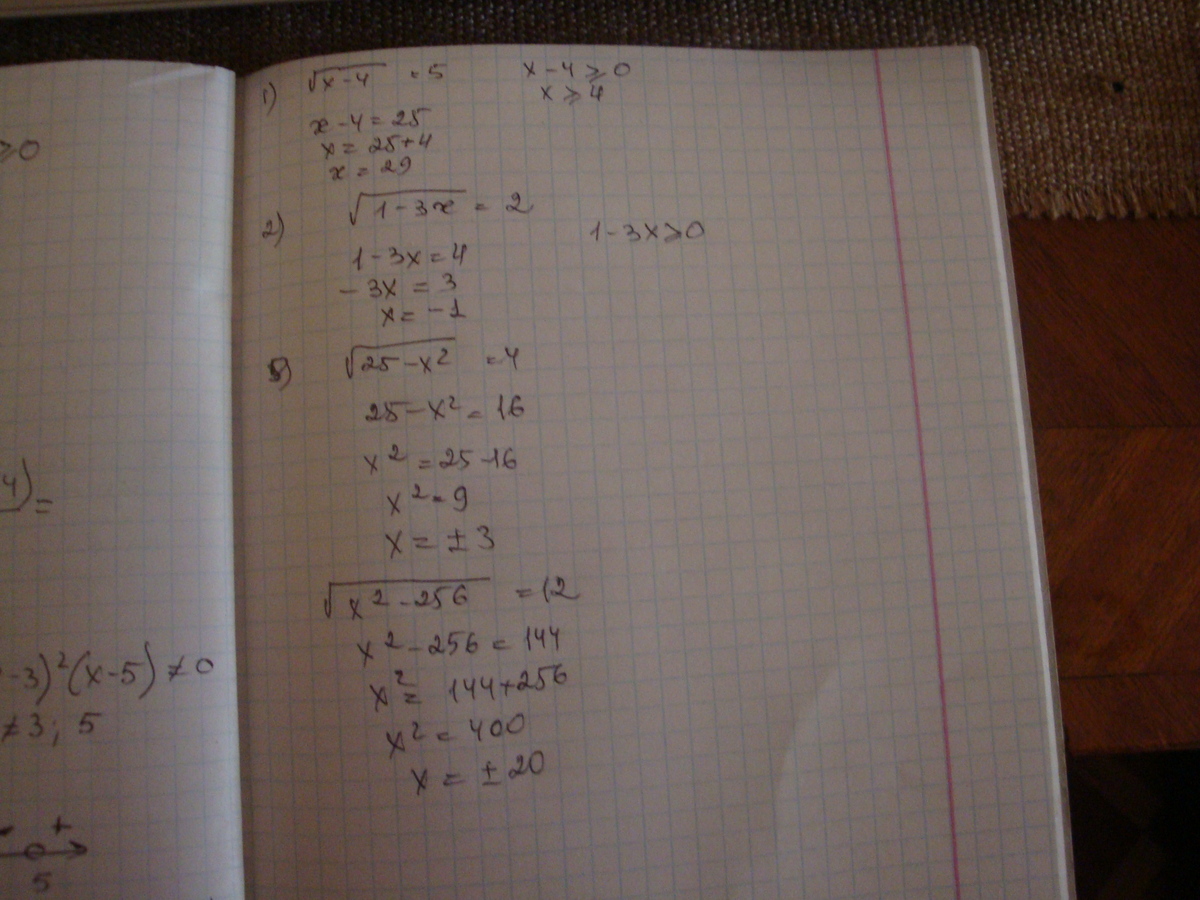 ≥0
4)
=
-3)²(x-5)≠0
≠3; 5
- +
5
1) √(x-4) = 5 x-4≥0
x≥4
x-4=25
x= 25+4
x = 29
2) √(1-3x) = 2 1-3x≥0
1-3x=4
-3x = 3
x= -1
√(25-x²) =4
25-x² = 16
x² =25-16
x² = 9
x = ±3
√(x²-256) =12
x²-256=144
x² = 144+256
x² = 400
x = ±20